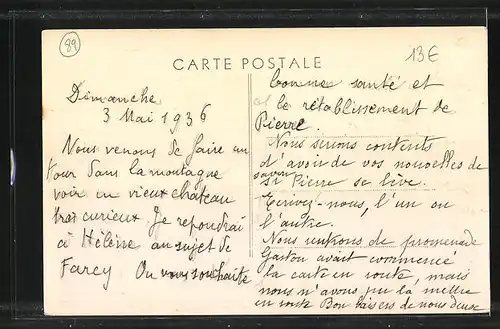 89
13€
CARTE POSTALE
Dimanche
3 Mai 1936
Nous venons de faire un
tour dans la montagne
voir un vieux château
tres curieux Je repondrai
à Hélène au sujet de
Farcy On vous souhaite
bonne santé et
le rétablissement de
Pierre.
Nous serions contents
d'avoir de vos nouvelles de
savoir
si Pierre se lève.
Ecrivez-nous, l'un ou
l'autre.
Nous rentrons de promenade
Gaston avait commencé
la carte en route, mais
nous n'avons pu la mettre
en route Bon baisers de nous deux